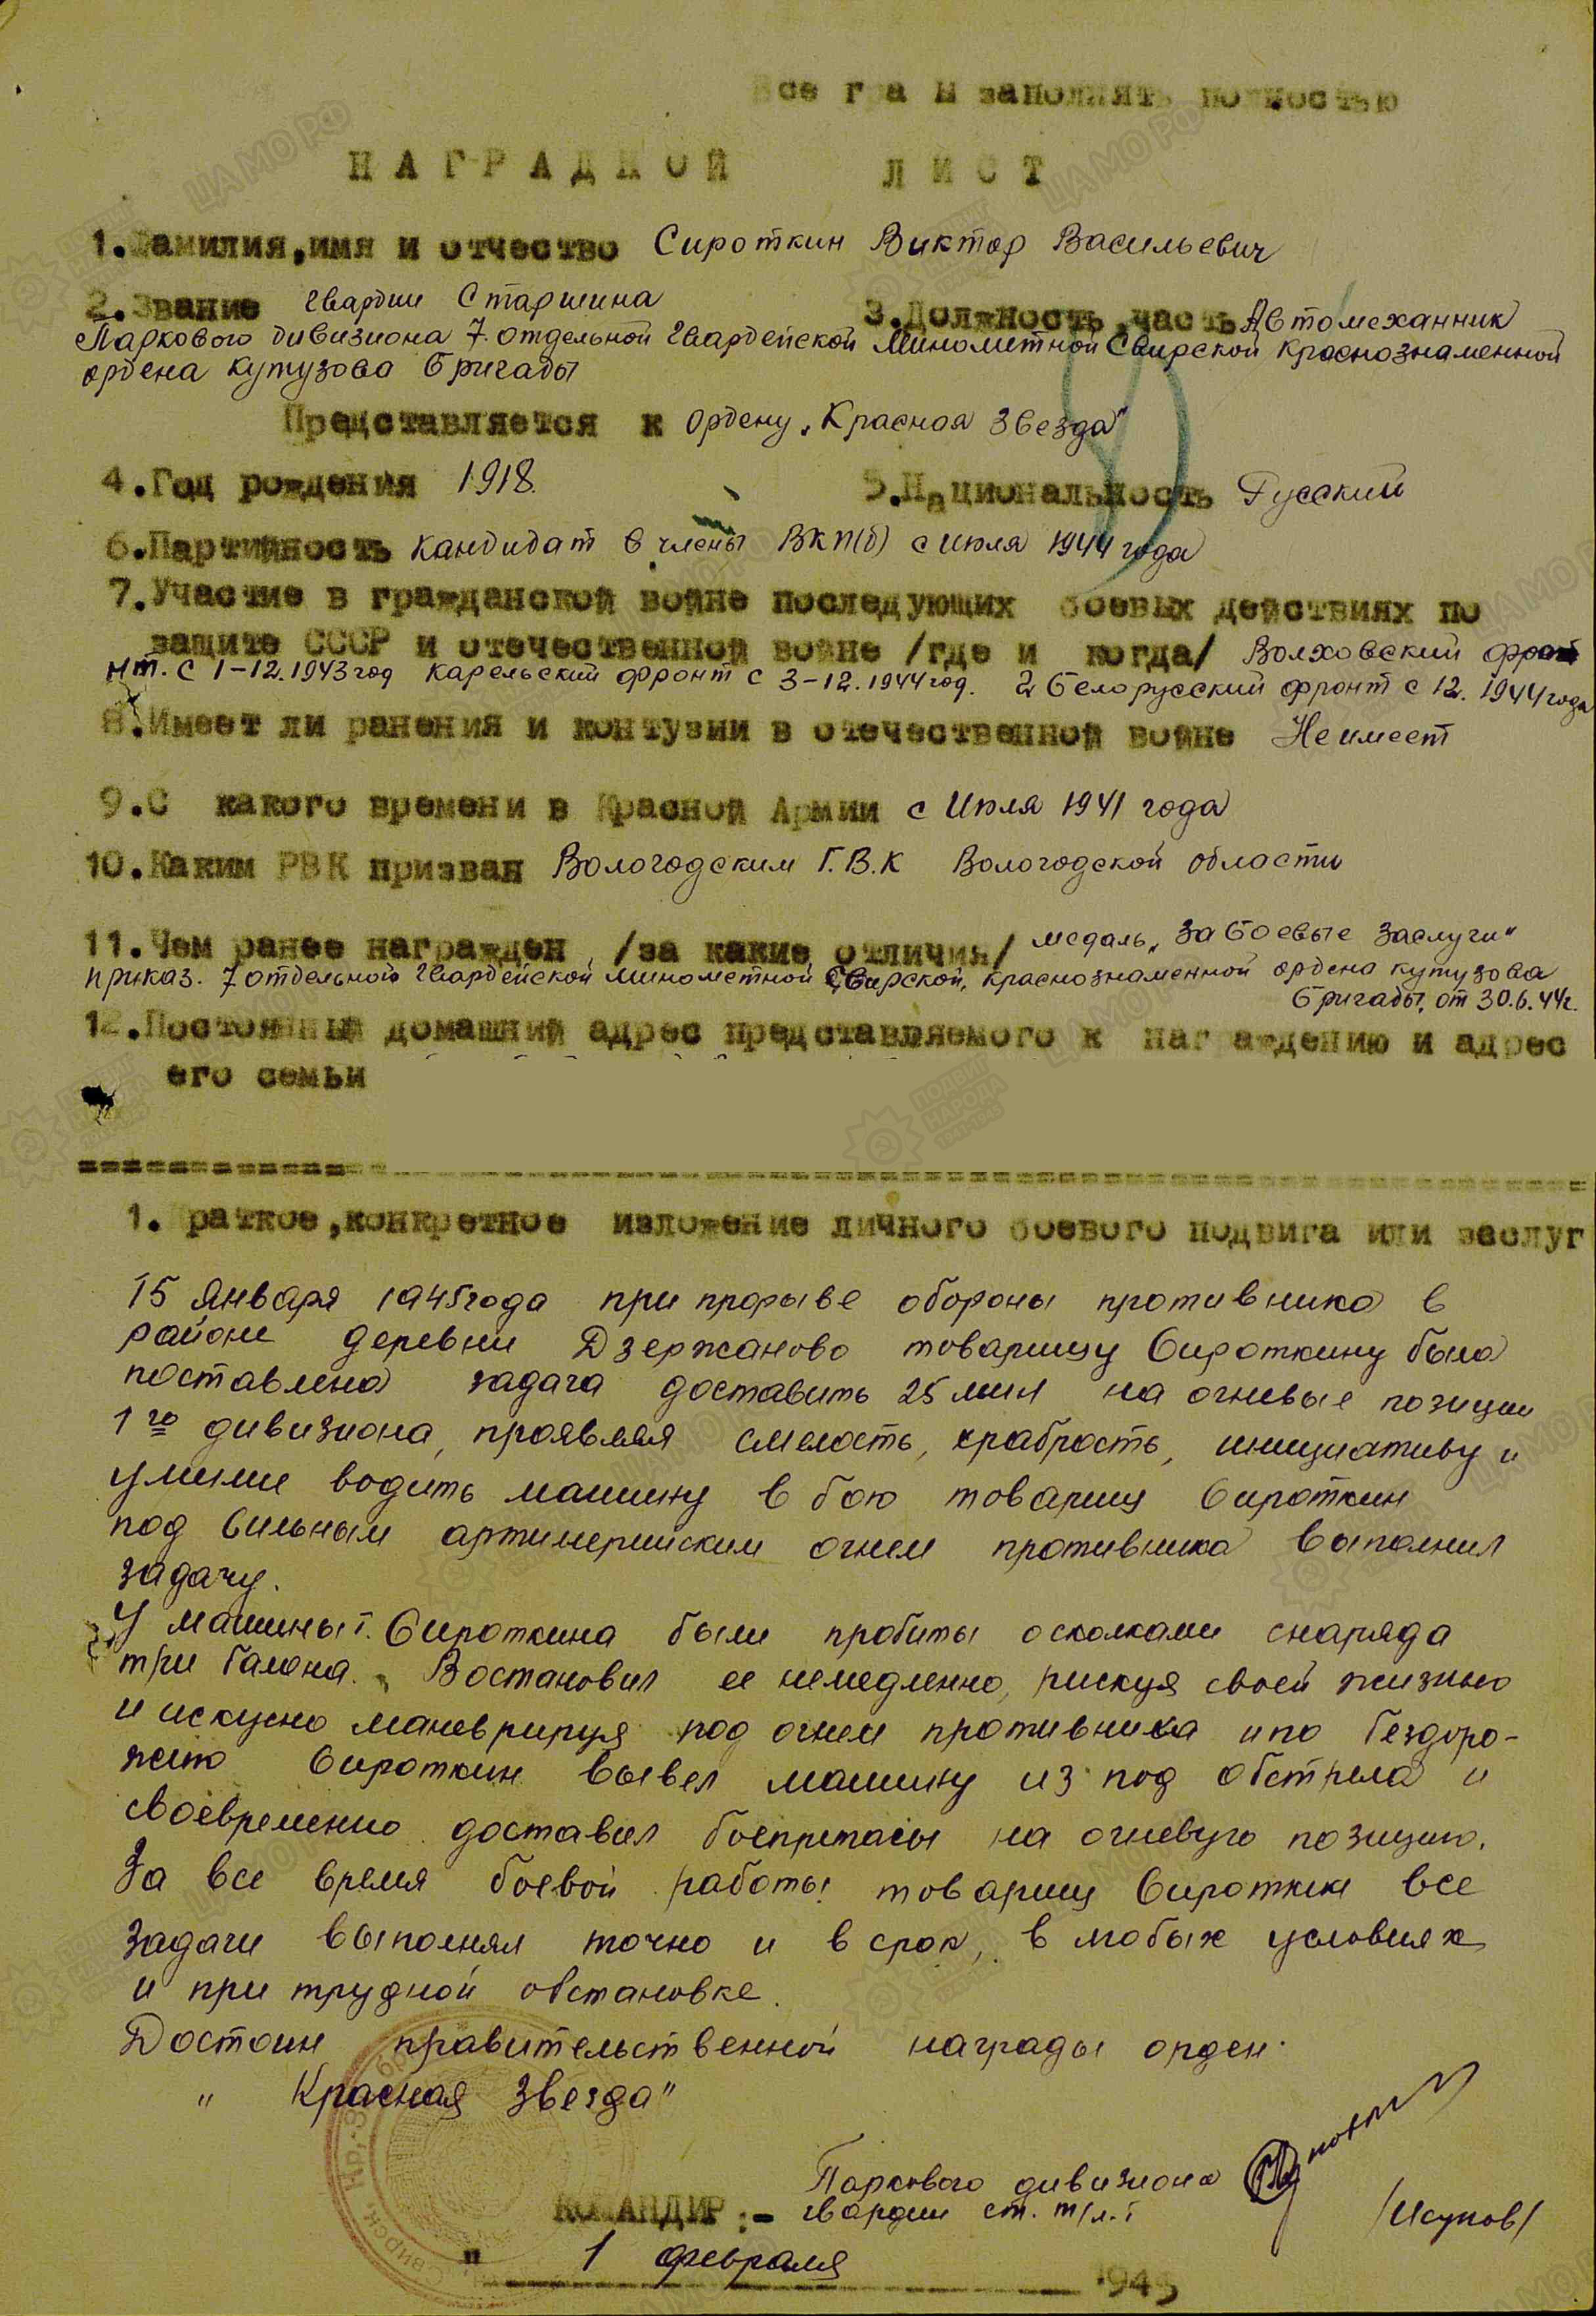 Все гра ы заполнять полностью
НАГРАДНОЙ ЛИСТ
1.Фамилия,имя и отчество Сироткин Виктор Васильевич
2.Звание гвардии Старшина 3.Должность,часть Автомеханник
Паркового дивизиона 7 отдельной Гвардейской Минометной Свирской Краснознаменной
ордена кутузова бригады
Представляется к ордену „Красная Звезда"
4.Год рождения 1918. 5.Национальность Русский
6.Партийность кандидат в члены ВКП(б) с июля 1944 года
7.Участие в гражданской войне последующих боевых действиях по
защите СССР и отечественной войне /где и когда/ Волховский фро
нт. с 1-12.1943год Карельский фронт с 3-12.1944год. 2 Белорусский фронт с 12. 1944года
8.Имеет ли ранения и контузии в отечественной войне Не имеет
9.С какого времени в Красной Армии с Июля 1941 года
10.Каким РВК призван Вологодским Г.В.К Вологодской области
11.Чем ранее награжден /за какие отличия/ медаль „За боевые заслуги"
приказ. 7 отдельной Гвардейской минометной Свирской, краснознаменной ордена кутузова
бригады, от 30.6.44г.
12.Постоянный домашний адрес представляемого к награждению и адрес
его семьи
1. Краткое,конкретное изложение личного боевого подвига или заслуг
15 января 1945года при прорыве обороны противника в
районе деревни Дзержаново товарищу Сироткину была
поставлена задача доставить 25 мин на огневые позиции
1го дивизиона, проявляя смелость, храбрость, инициативу и
умение водить машину в бою товарищ Сироткин
под сильным артилерийским огнем противника выполнил
задачу.
У машины т. Сироткина были пробиты осколками снаряда
три балона. Востановил ее немедленно, рискуя своей жизнью
и искусно маневрируя под огнем противника и по бездоро-
жию Сироткин вывел машину из под обстрела и
своевременно доставил боеприпасы на огневую позицию.
За все время боевой работы товарищ Сироткин все
задачи выполнял точно и в срок, в любых условиях
и при трудной обстановке.
Достоин правительственной награды орден
" Красная Звезда"
Паркового дивизиона
КОМАНДИР :- гвардии ст. т/л-т /Исупов/
" 1 февраля 1945